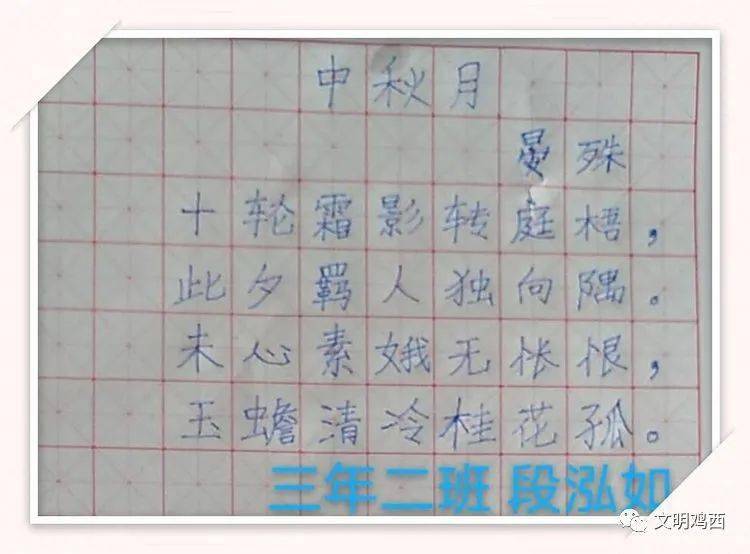 中秋月
晏殊
十轮霜影转庭梧，
此夕羁人独向隅。
未心素娥无怅恨，
玉蟾清冷桂花孤。
三年二班 段泓如
文明鸡西